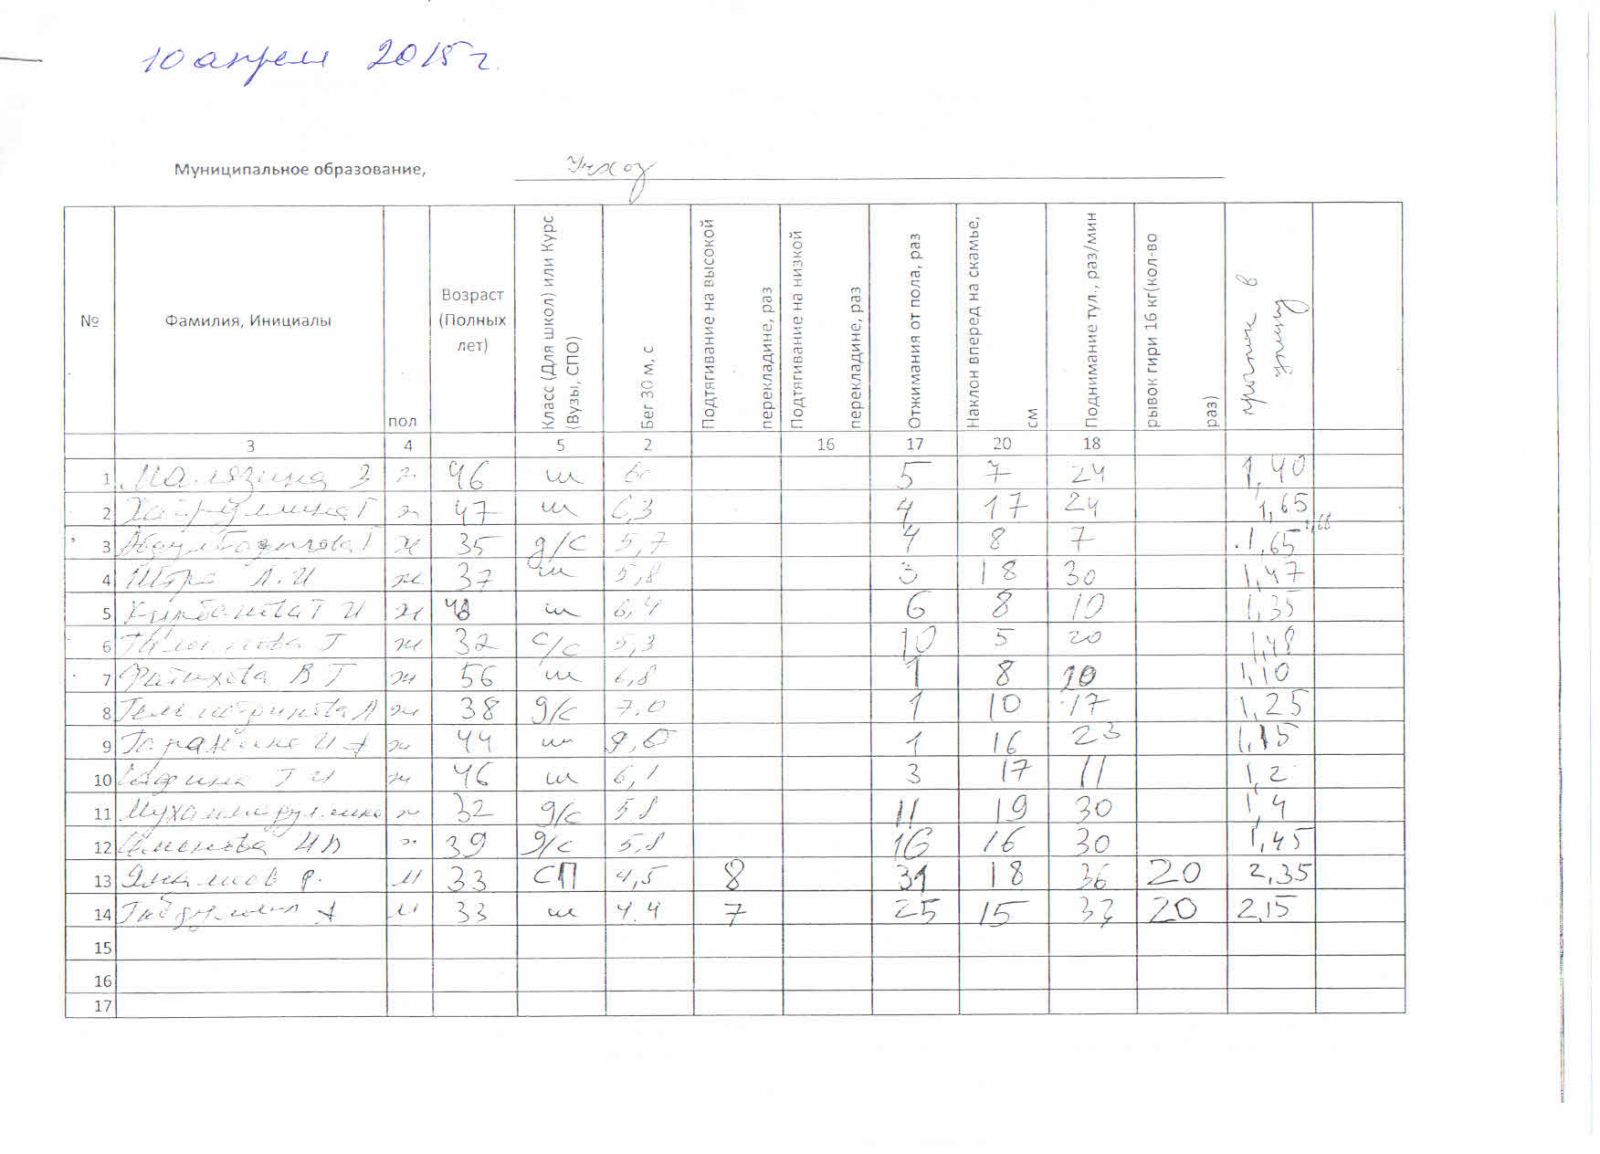 10 апреля 2015г.
Муниципальное образование, Учхоз
№ Фамилия, Инициалы пол Возраст (Полных лет) Класс (Для школ) или Курс (Вузы, СПО) Бег 30 м, с Подтягивание на высокой перекладине, раз Подтягивание на низкой перекладине, раз Отжимания от пола, раз Наклон вперед на скамье, см Поднимание тул., раз/мин рывок гири 16 кг(кол-во раз) прыжок в
3 4 5 2 16 17 20 18
1 З ж 46 ш 5 7 24 1,40
2 Хайруллина Г ж 47 ш 6,3 4 17 24 1,65
3 Г ж 35 д/с 5,7 4 8 7 1,65 1,66
4 Л.И ж 37 ш 5,8 3 18 30 1,47
5 Курбанова Г И ж 48 ш 6,4 6 8 10 1,35
6 Г ж 32 с/с 5,3 10 5 20 1,48
7 Фатихова В Г ж 56 ш 6,8 1 8 1,10
8 ж 38 д/с 7.0 1 10 17 1,25
9 И А ж 44 ш 1 16 23 1,15
10 Г И ж 46 ш 6,1 3 17 11 1,2
11 ж 32 д/с 5,8 11 19 30 1,4
12 ж 39 д/с 5,8 16 16 30 1,45
13 м 33 СП 4,5 8 31 18 36 20 2,35
14 А м 33 ш 4.4 7 25 15 20 2,15
15
16
17